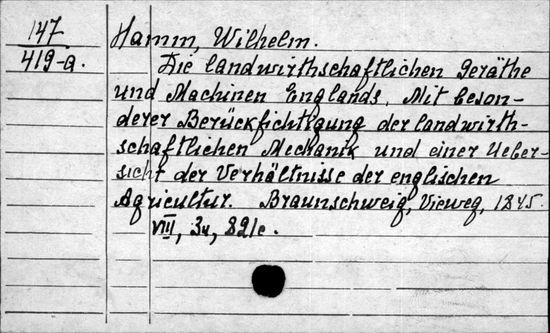 147
419-a.
Hamm, Wilhelm.
Die landwirthschaftlichen Geräthe
und Machinen Englands. Mit beson-
derer Berückfichtigung der landwirth-
schaftlichen Mechanik und einer Ueber-
sicht der Verhältnisse der englischen
Agricultur. Braunschweig, Vieweg, 1845.
VIII, 821